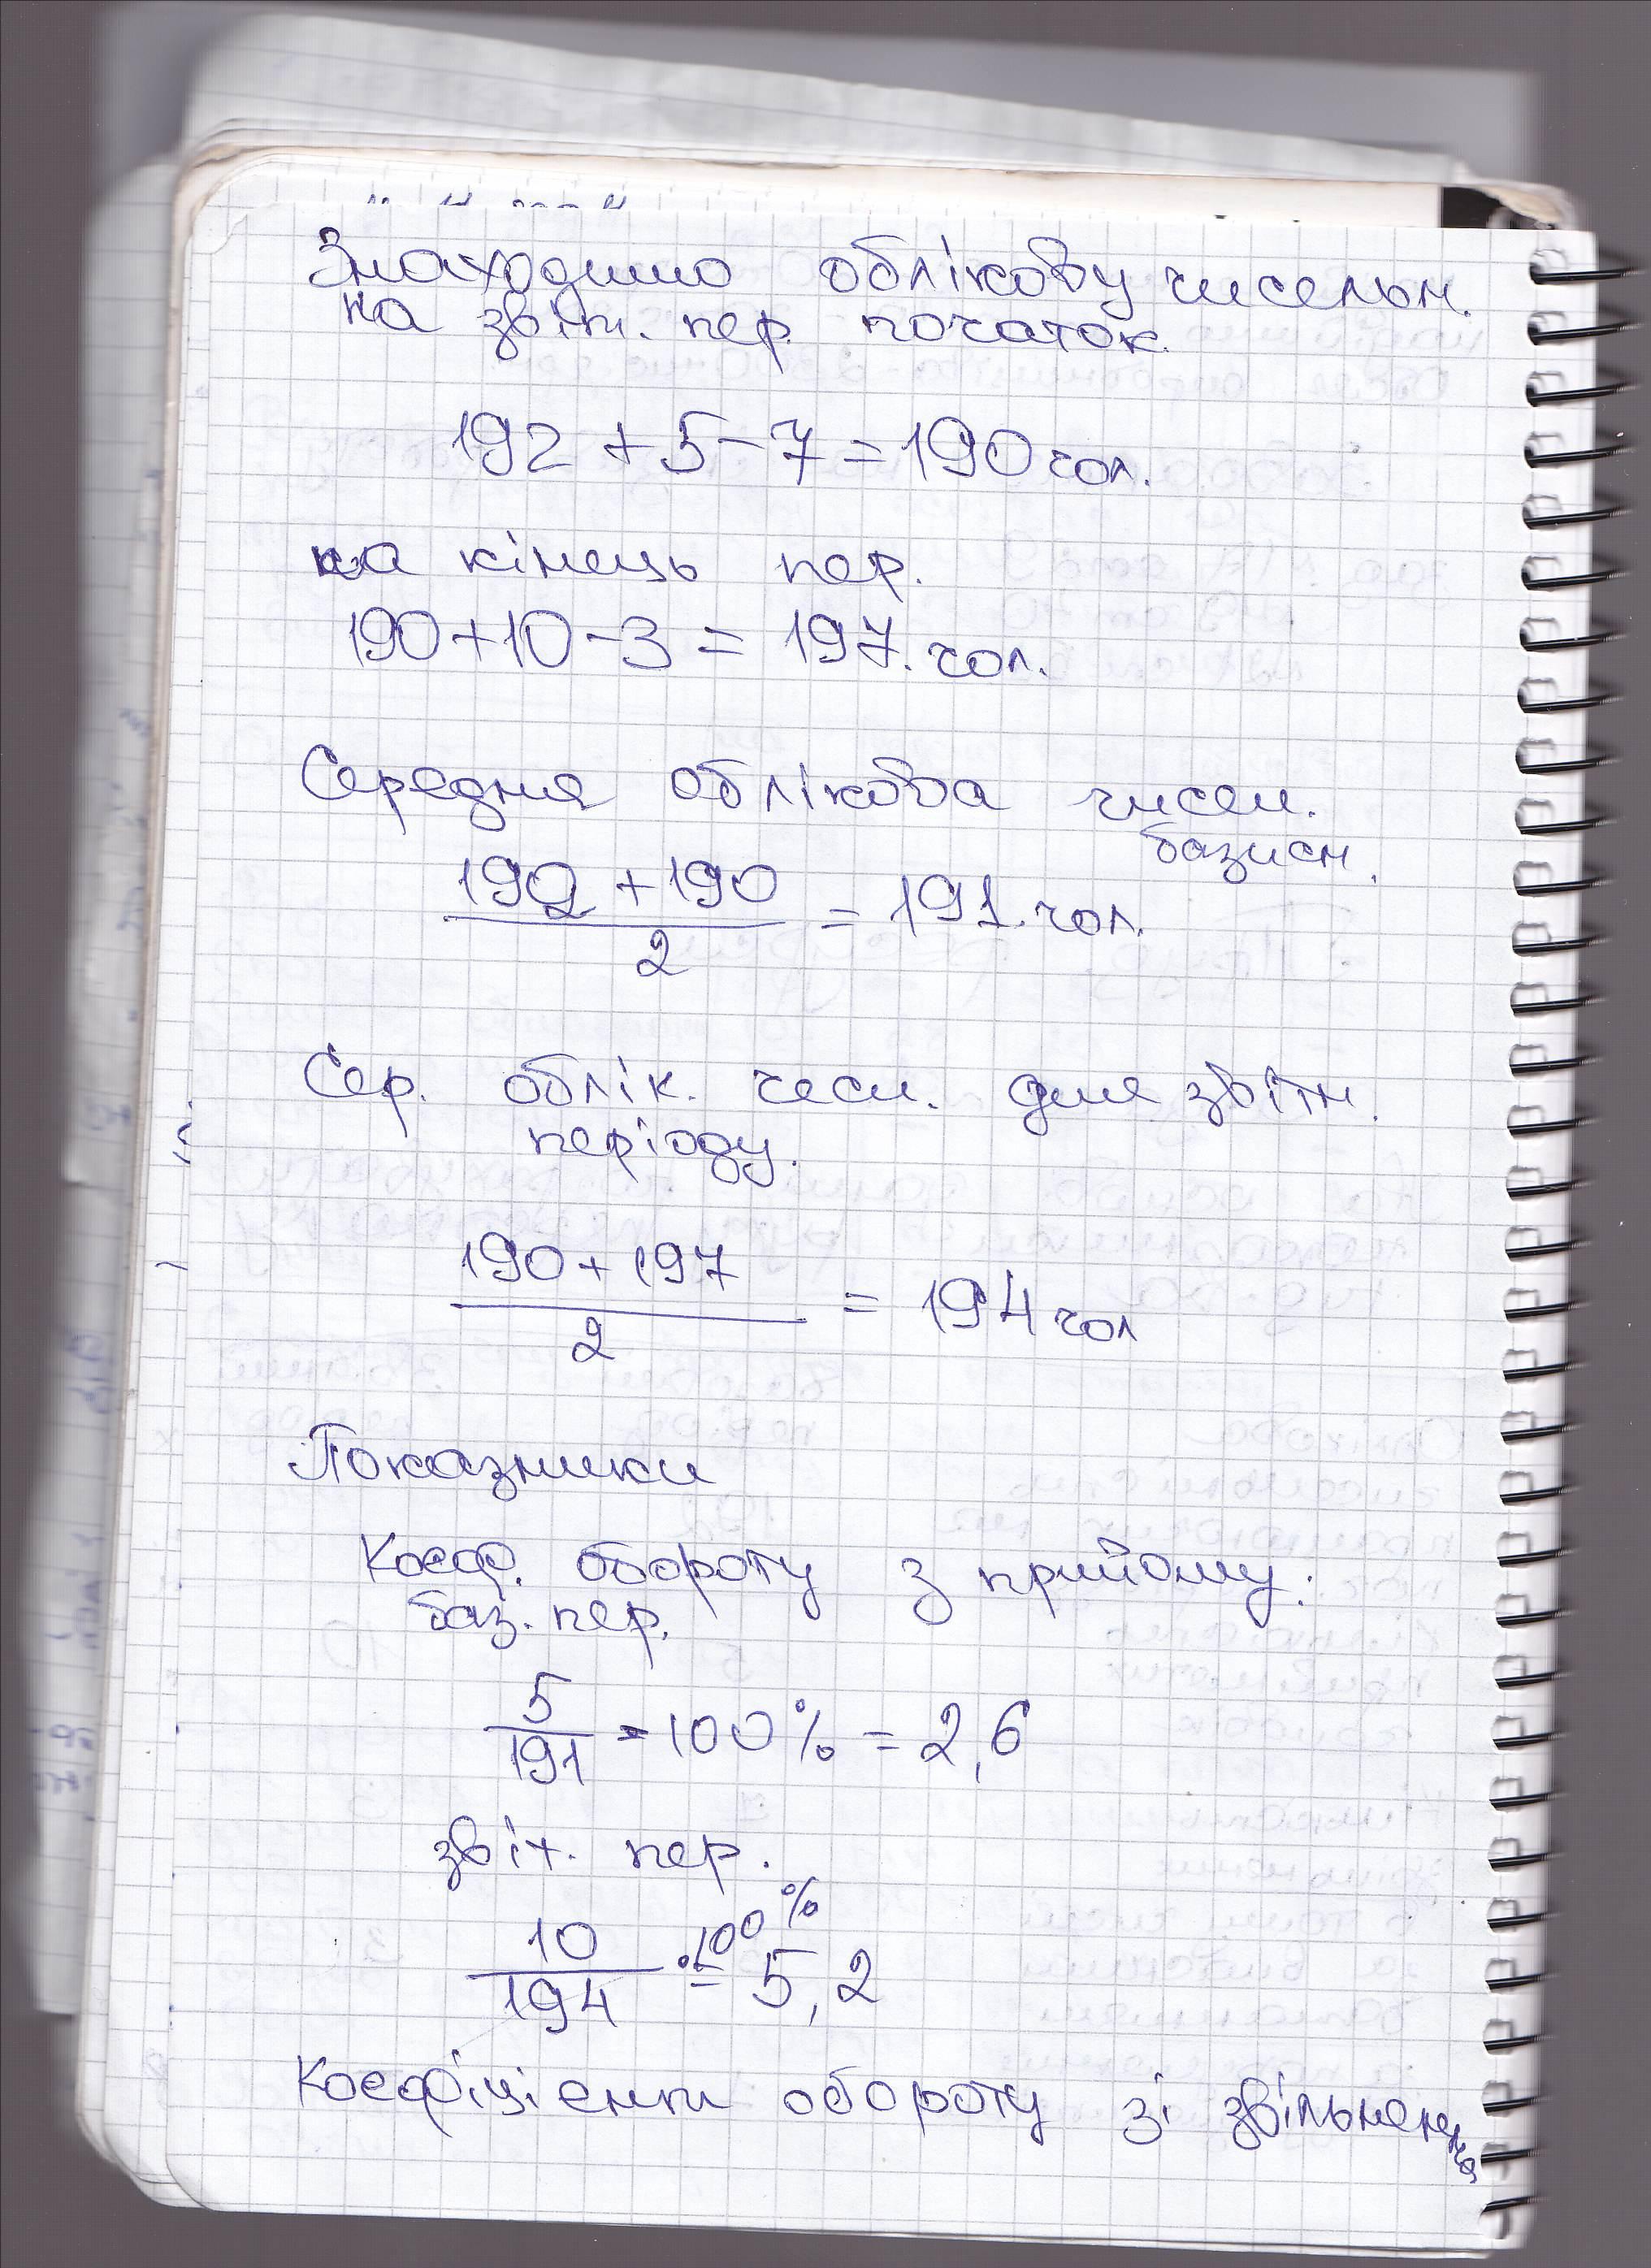 Знаходимо облікову чисельн.
на звітн. пер. початок.
192 + 5 - 7 = 190 чол.
на кінець пер.
190 + 10 - 3 = 197. чол.
Середня облікова чисел.
базисн.
192 + 190
2
= 191. чол.
Сер. облік. чесл. для звітн.
періоду.
190 + 197
2
= 194 чол
Показники
Коеф. обороту з прийому:
баз. пер.
5
191
· 100 % = 2,6
звіт. пер.
10
194
· 100 %
= 5,2
Коефіцієнти обороту зі звільнення